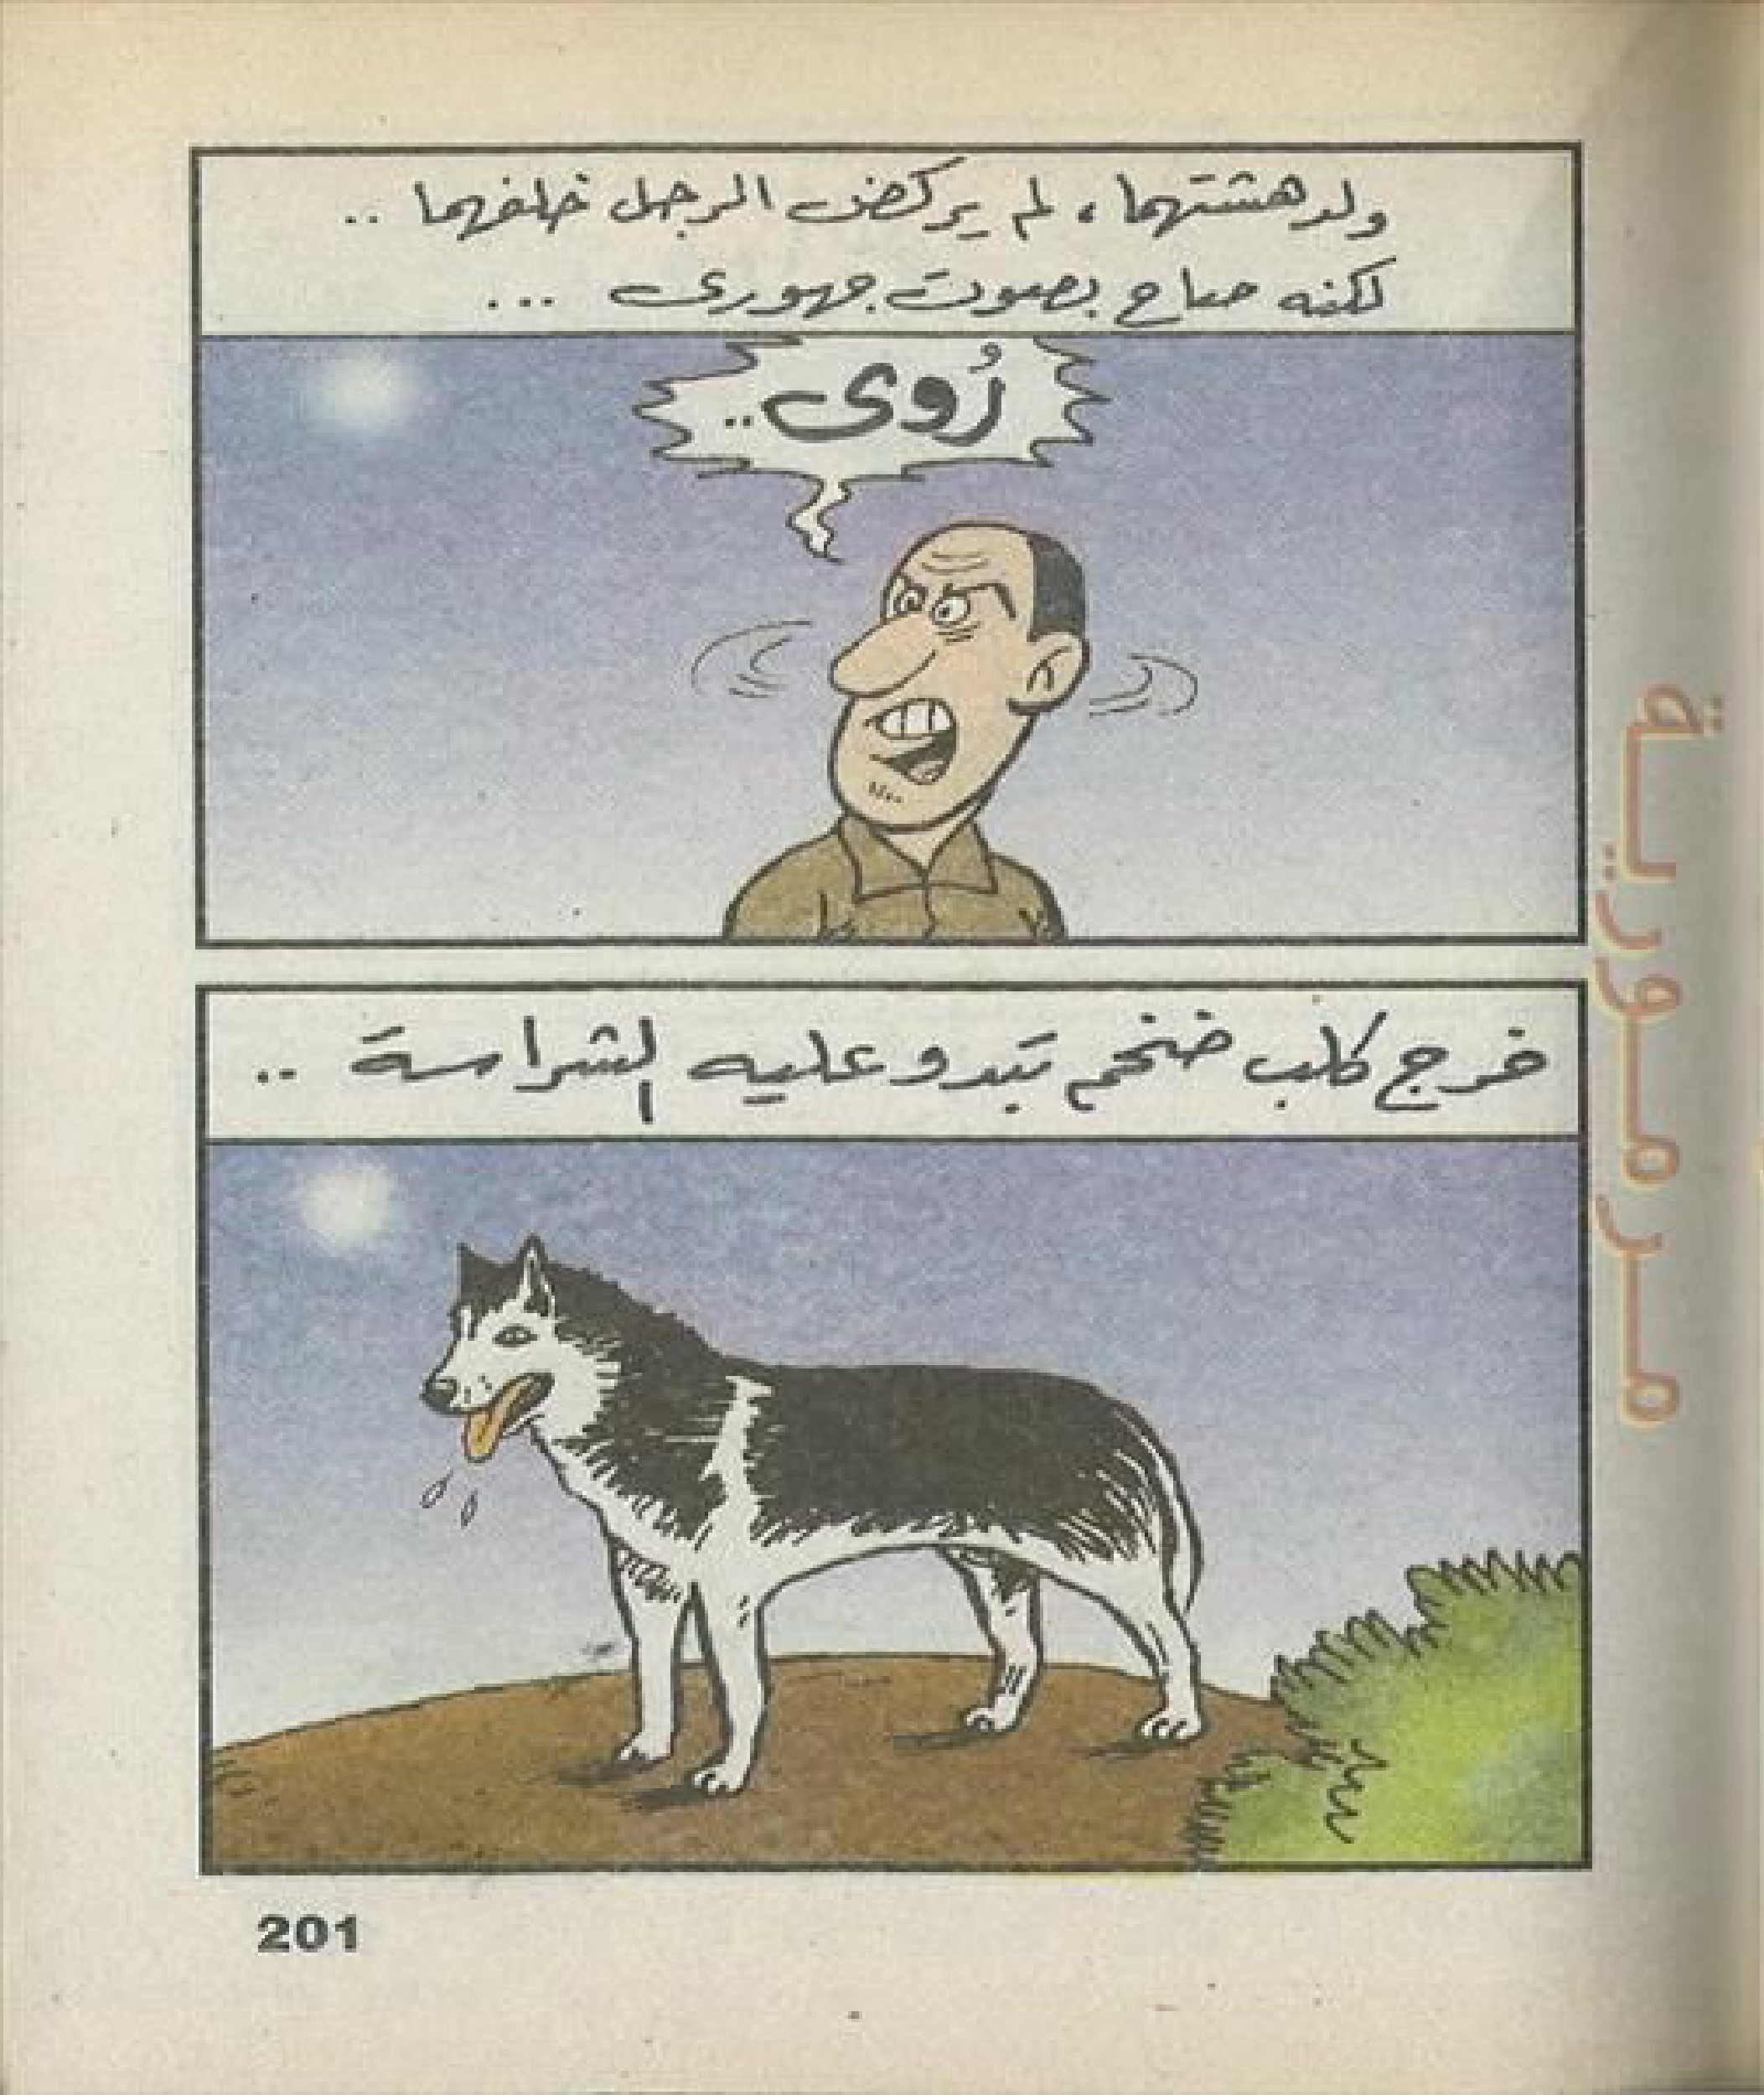 ولدهشتهما، لم يركض الرجل خلفهما ..
لكنه صاح بصوت جهورى ...
رُوى ..
خرج كلب ضخم تبدو عليه الشراسة ..
201
مرمورية